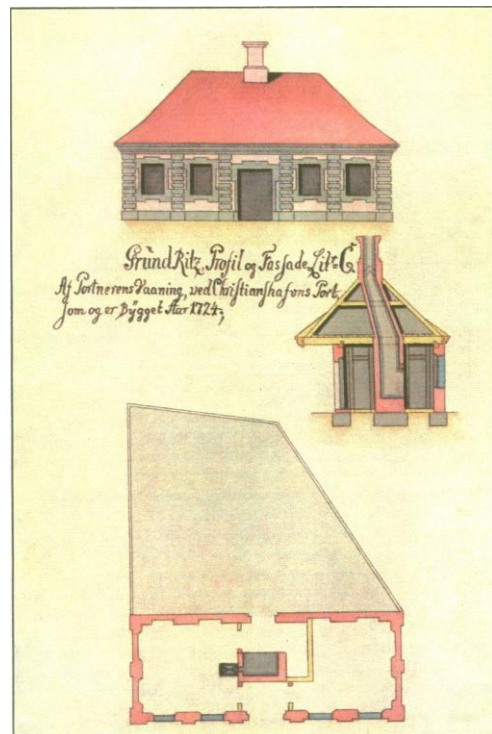 Grund Ritz, Profil og Fassade, Litr: C.
Af Portnerens Vaaning, ved Christianshafvns Port
som og er Bÿgget Aar 1724,